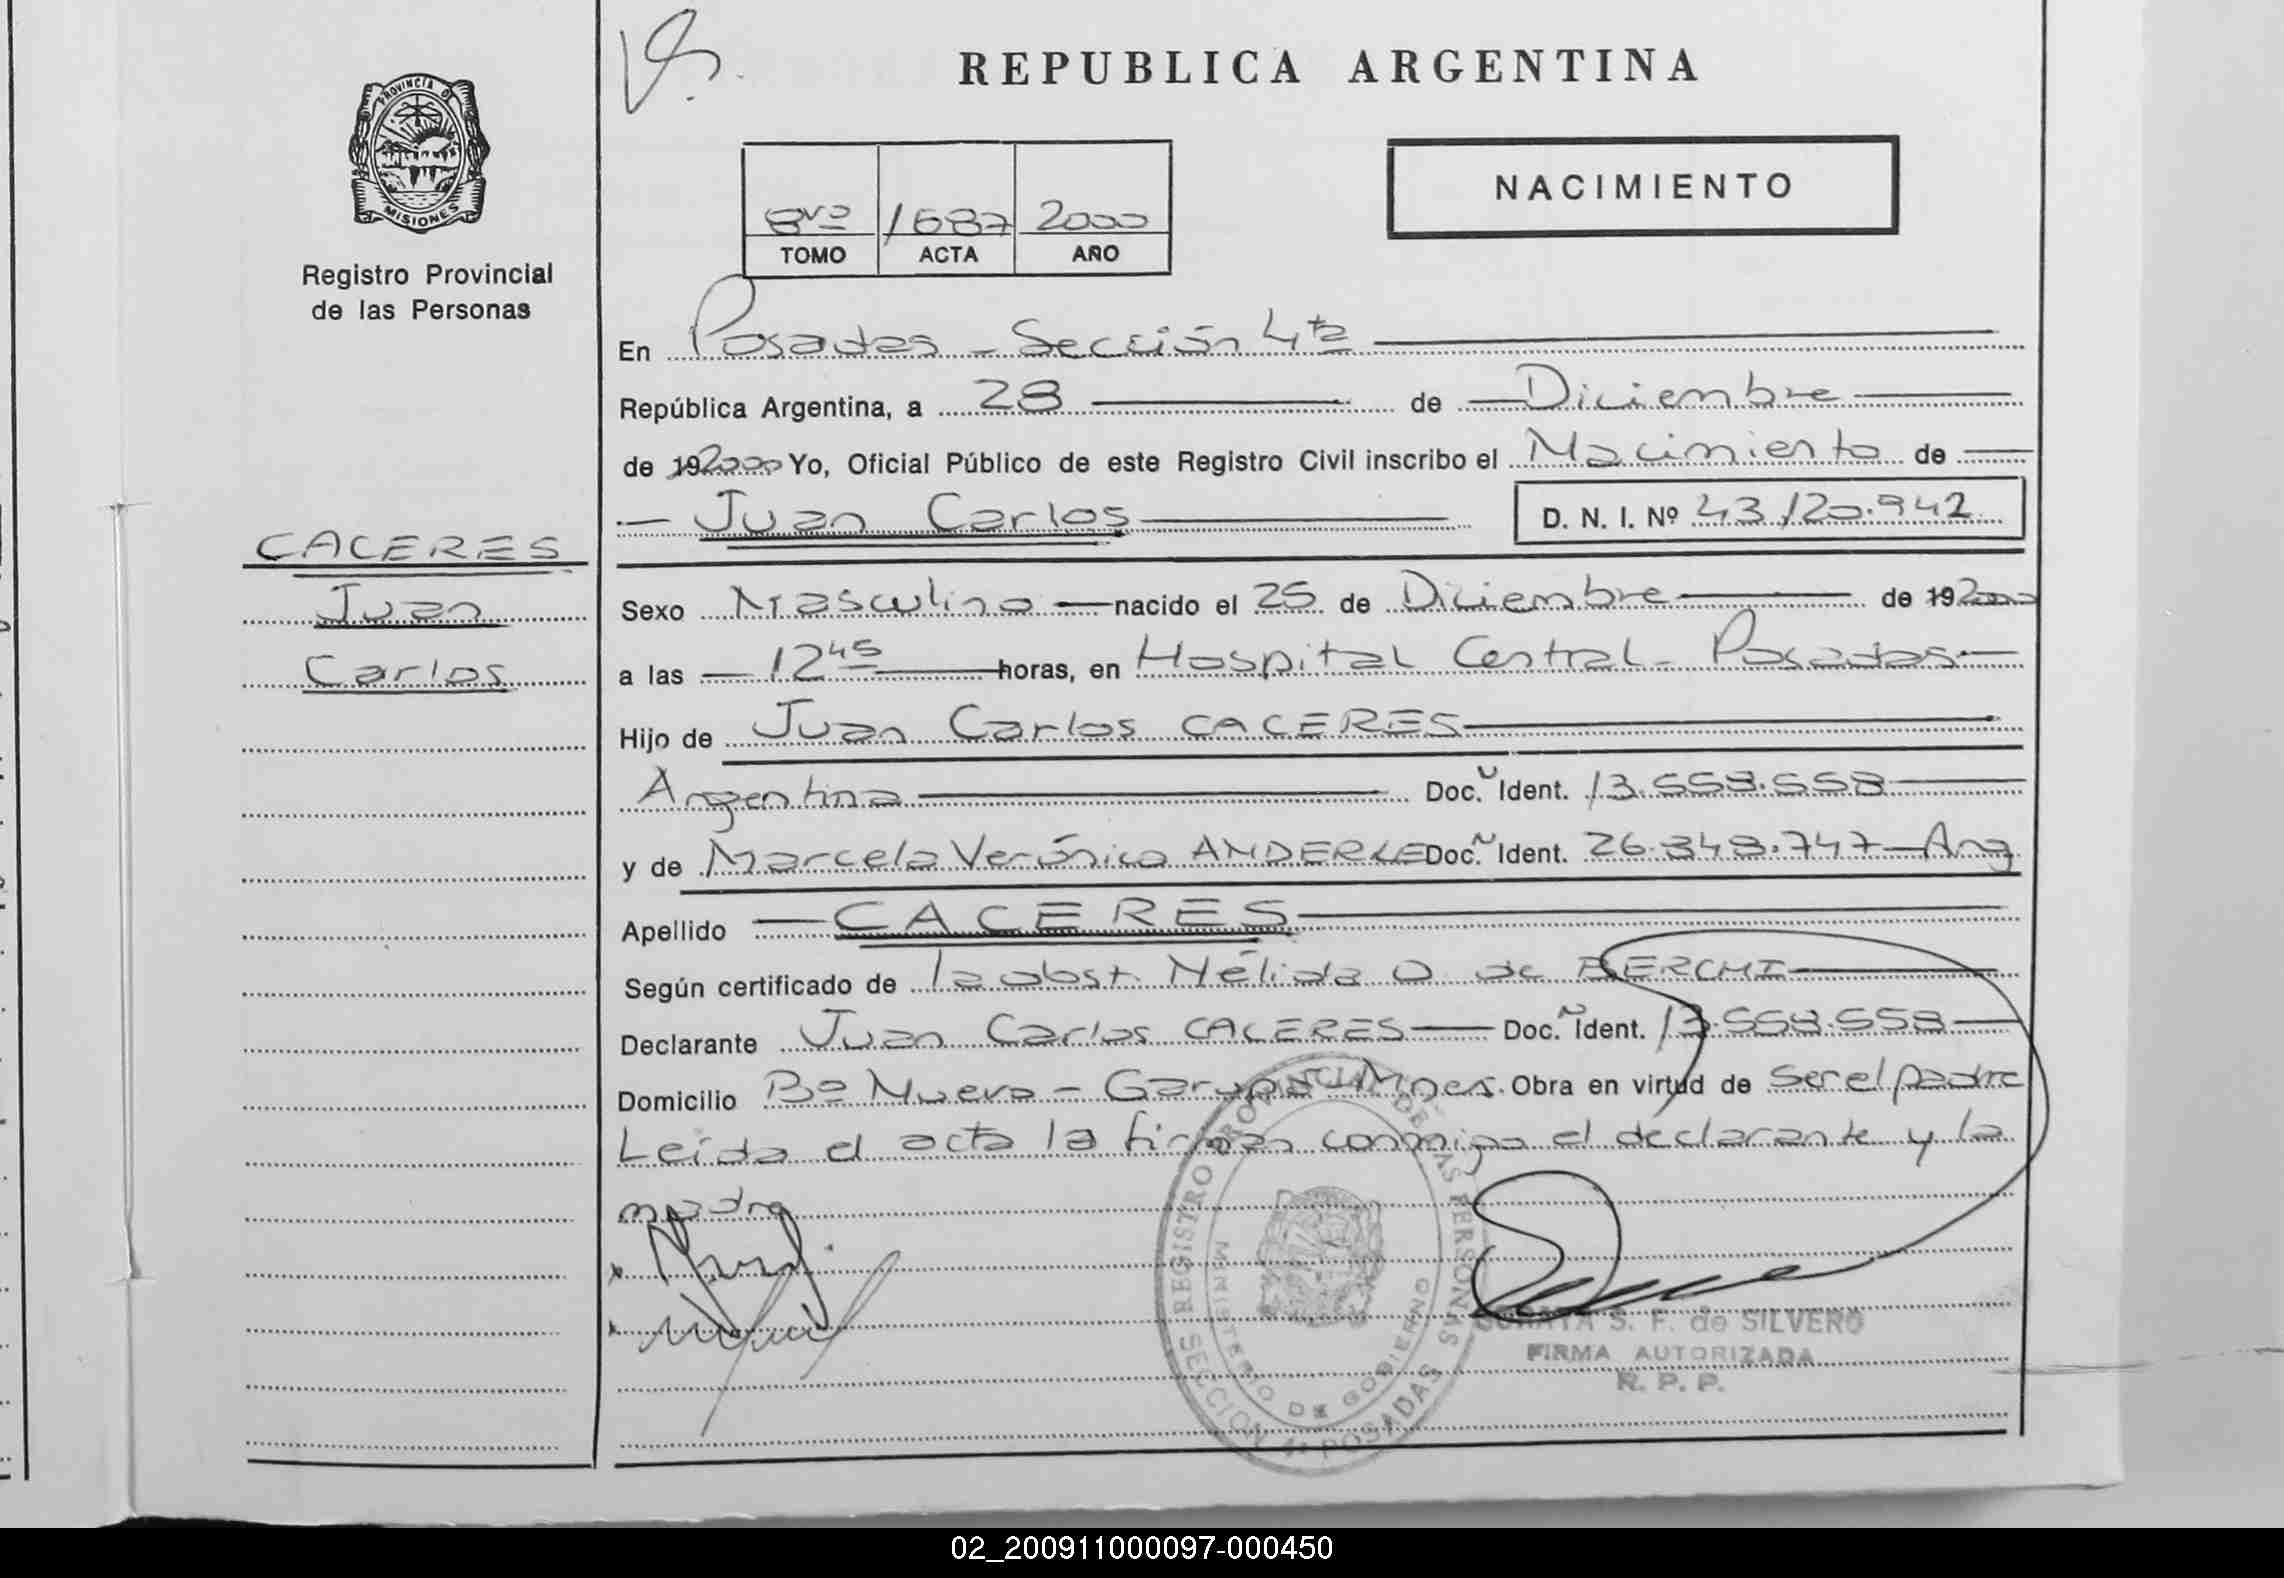 REPUBLICA ARGENTINA
PROVINCIA DE
MISIONES
Registro Provincial
de las Personas
8vo 1687 2000
TOMO ACTA AÑO
NACIMIENTO
En Posadas - Sección 4ta
República Argentina, a 28 de Diciembre
de 192000 Yo, Oficial Público de este Registro Civil inscribo el Nacimiento de
Juan Carlos D. N. I. Nº 43.120.942
CACERES
Juan
Carlos
Sexo Masculino nacido el 25 de Diciembre de 192000
a las 12 45 horas, en Hospital Central - Posadas
Hijo de Juan Carlos CACERES
Argentina Doc. Ident. 13.558.558
y de Marcela Verónica ANDERLE Doc. Ident. 26.348.747 - Arg
Apellido CACERES
Según certificado de la obst. Nélida O. de BERCHI
Declarante Juan Carlos CACERES Doc. Ident. 13.558.558
Domicilio Bº Nuevo - Garupá - Mnes. Obra en virtud de Ser el padre
Leída el acta la firman conmigo el declarante y la
madre
REGISTRO PROVINCIAL DE LAS PERSONAS
MINISTERIO DE GOBIERNO
SECCION 4ª POSADAS
SORAYA S. F. de SILVERO
FIRMA AUTORIZADA
R. P. P.
02_200911000097-000450